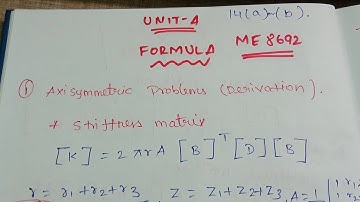 14(a)-(b).
UNIT-4
FORMULA ME 8692
① Axisymmetric Problems (Derivation).
* Stiffness matrix
[K] = 2πrA [B]ᵀ [D] [B]
r = r₁+r₂+r₃ Z = Z₁+Z₂+Z₃, A = 1 | 1 r₁
1 r₂